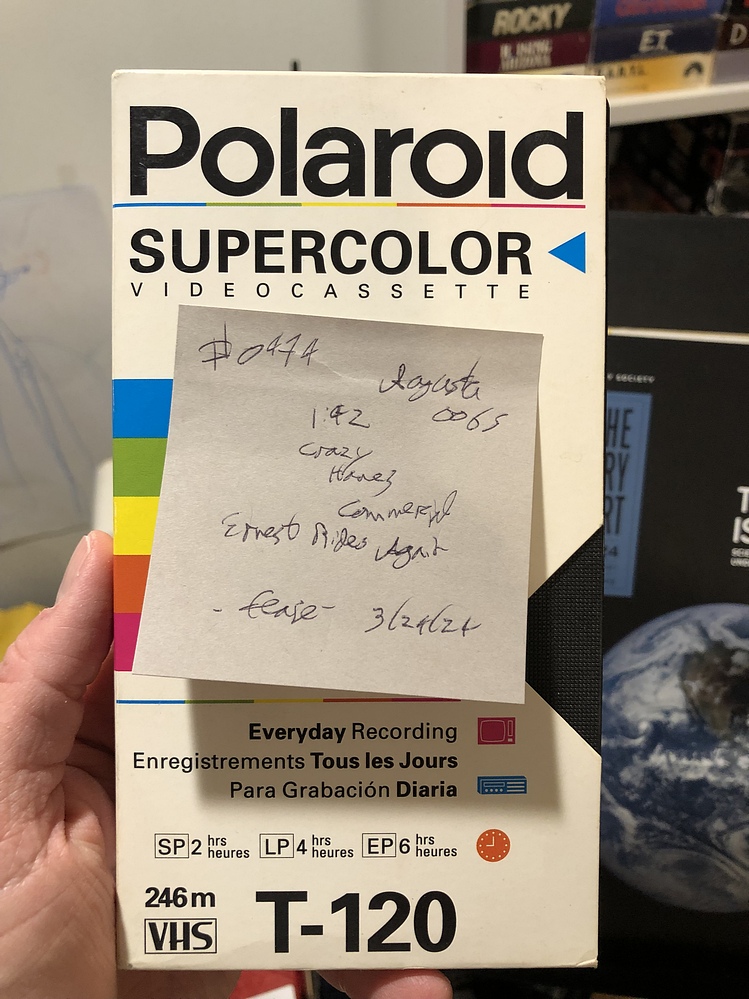 ROCKY
E.T.
D
Polaroid
SUPERCOLOR
VIDEOCASSETTE
#0474
Augusta
1:42 0065
Crazy
Harrez
Commercial
Ernest Rides Again
3/24/24
SOCIETY
HE
RY
RT
T
IS
Everyday Recording
Enregistrements Tous les Jours
Para Grabación Diaria
SP 2 hrs heures LP 4 hrs heures EP 6 hrs heures
246 m
VHS
T-120